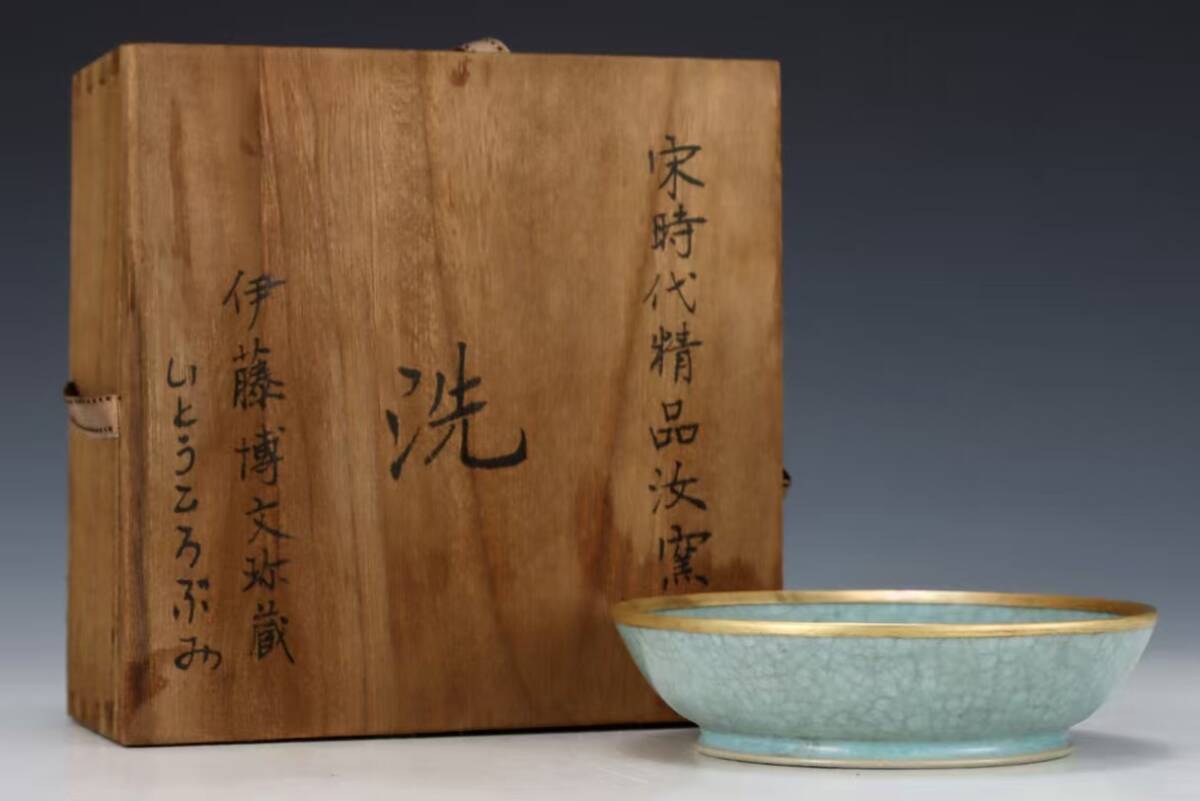 宋時代精品汝窯
洗
伊藤博文珍蔵
いとうひろぶみ